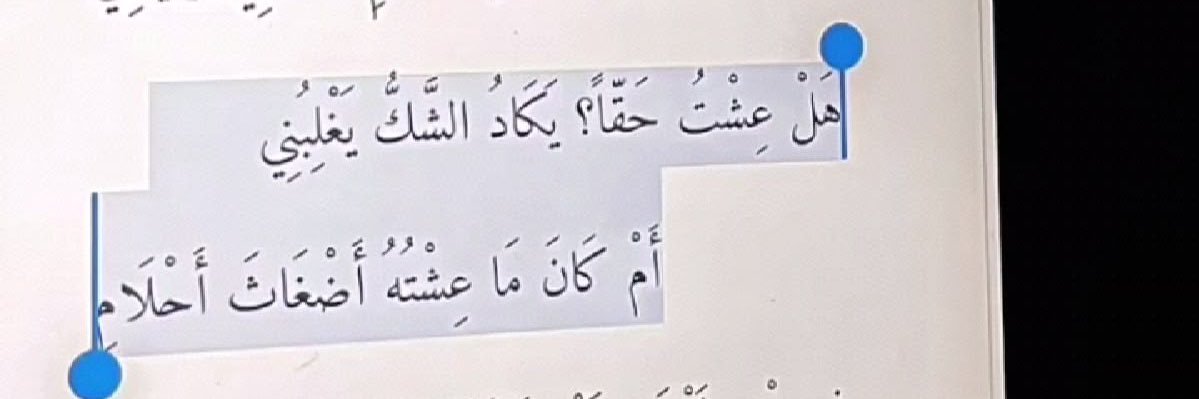 هَلْ عِشْتُ حَقّاً؟ يَكَادُ الشَّكُّ يَغْلِبُنِي
أَمْ كَانَ مَا عِشْتُهُ أَضْغَاثَ أَحْلَامِ